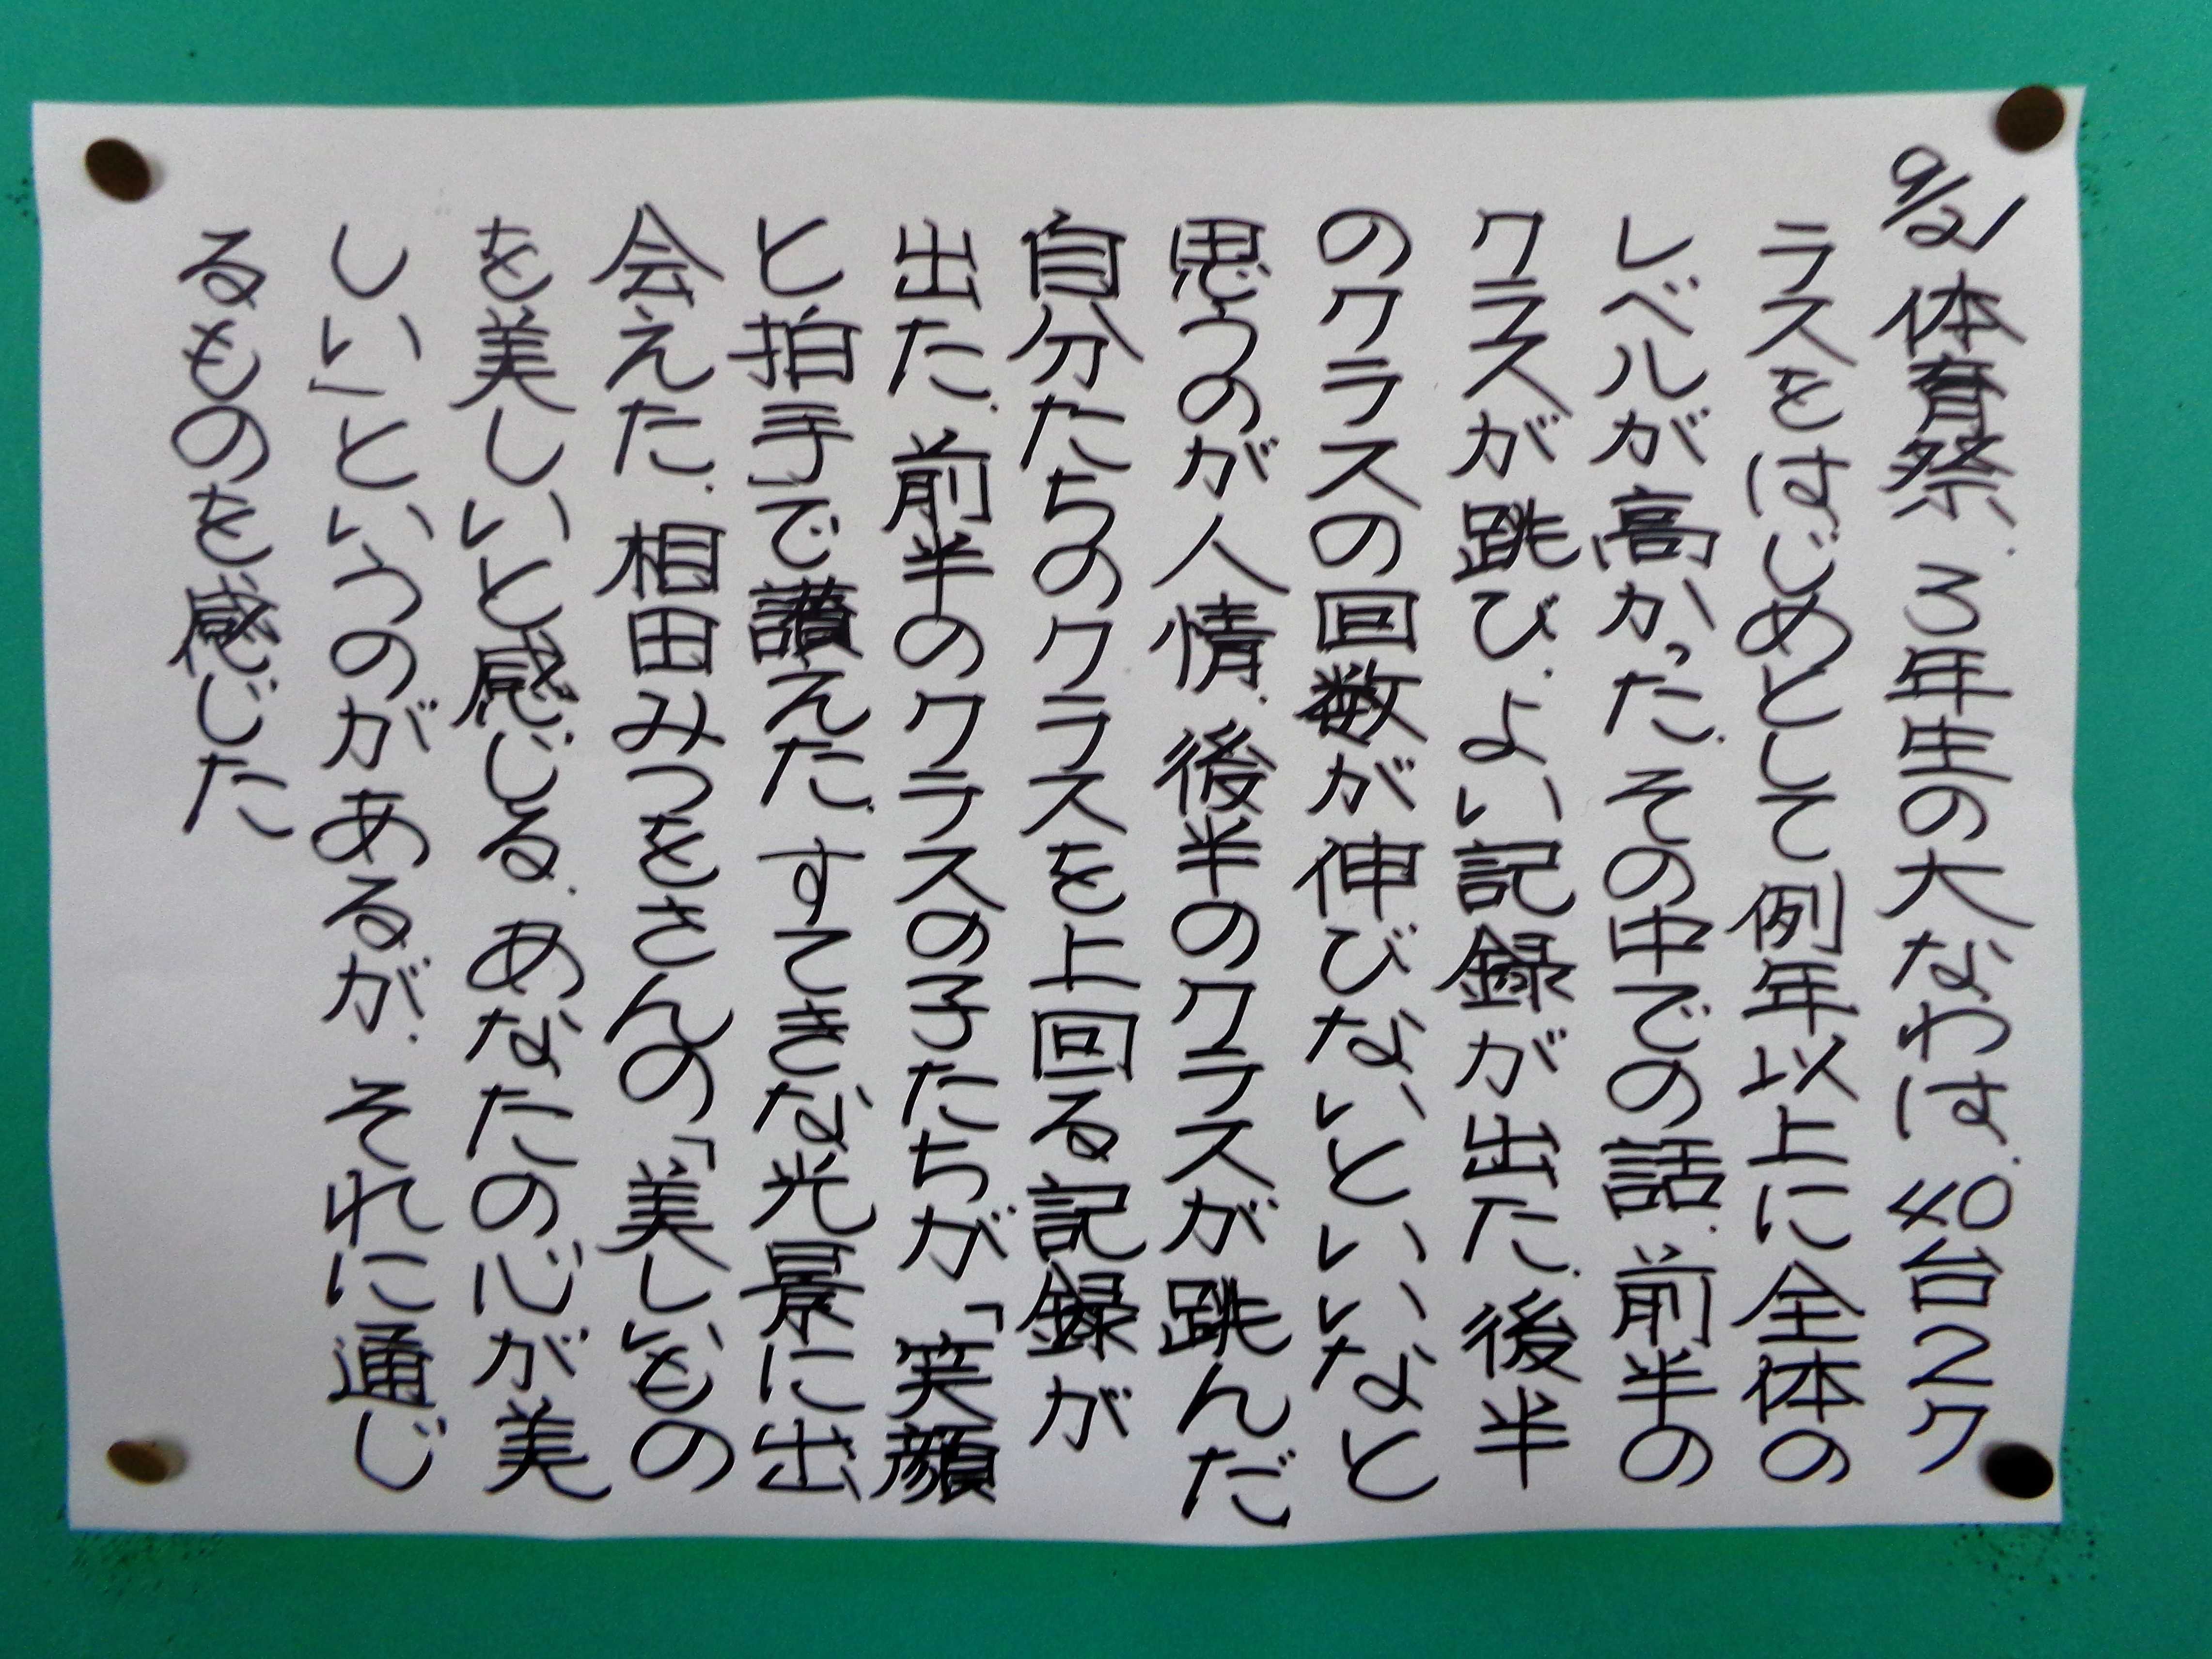 9/21 体育祭. 3年生の大なわは. 40台2ク
ラスをはじめとして例年以上に全体の
レベルが高かった. その中での話. 前半の
クラスが跳び. よい記録が出た. 後半
のクラスの回数が伸びないといいなと
思うのが人情. 後半のクラスが跳んだ
自分たちのクラスを上回る記録が
出た. 前半のクラスの子たちが「笑顔
と拍手」で讃えた. すてきな光景に出
会えた. 相田みつをさんの「美しいもの
を美しいと感じる. あなたの心が美
しい」というのがあるが. それに通じ
るものを感じた